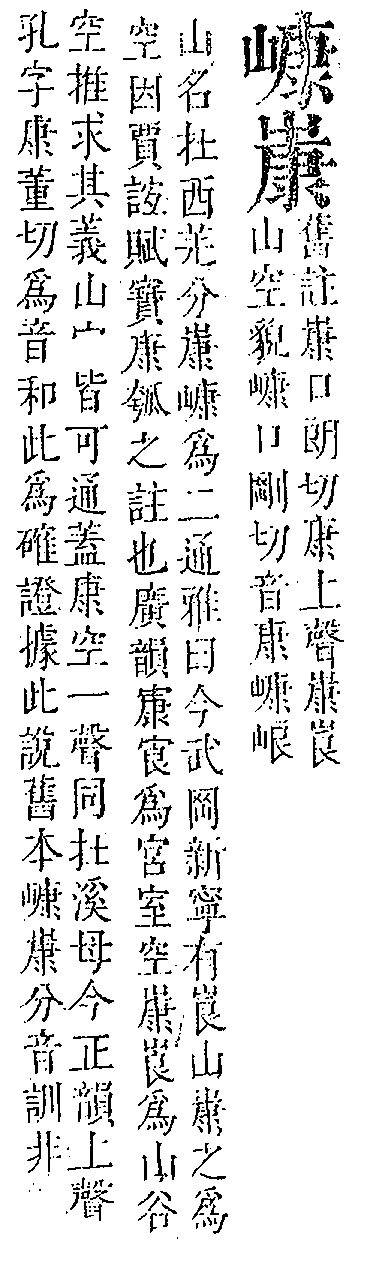 嵻𡻚
舊註𡻚口朗切康上聲𡻚崀
山空貌嵻口剛切音康嵻㟍
山名在西羌分𡻚嵻爲二通雅曰今武岡新寧有崀山𡻚之爲
空因賈誼賦寶康瓠之註也廣韻㝩㝗爲宮室空𡻚崀爲山谷
空推求其義山宀皆可通蓋康空一聲同在溪母今正韻上聲
孔字康董切爲音和此爲確證據此說舊本嵻𡻚分音訓非